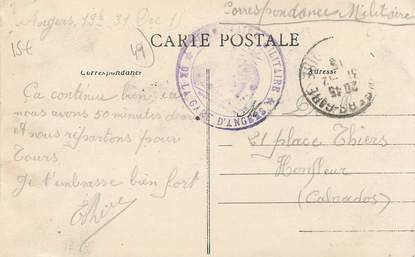 Angers, 19h 31 Dec 1
Correspondance Militaire
15€
49
CARTE POSTALE
Correspondance
Adresse
MILITAIRE
DE LA GARE D'ANGERS
ANGERS-GARE
20 45
31
Ça continue bien, ici
nous avons 50 minutes d'arrêt
nous repartons pour
Tours.
Je t'embrasse bien fort
21 place Thiers
Honfleur
(Calvados)